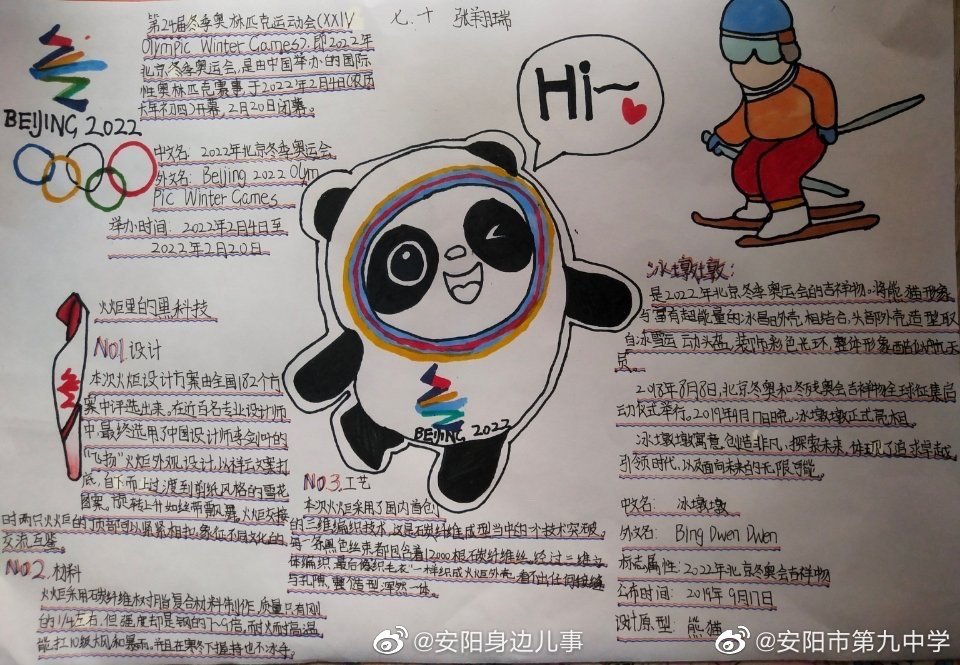 七.十 张翔瑞
第24届冬季奥林匹克运动会(XXIV
Olympic Winter Games),即2022年
北京冬季奥运会,是由中国举办的国际
性奥林匹克赛事,于2022年2月4日(农历
大年初四)开幕,2月20日闭幕。
BEIJING 2022
中文名:2022年北京冬季奥运会
外文名:Beijing 2022 Olym
Pic Winter Games
举办时间:2022年2月4日至
2022年2月20日
Hi~
火炬里的黑科技
NO1.设计
本次火炬设计方案由全国182个方
案中评选出来,在近百名专业设计师
中,最终选用了中国设计师李剑叶的
"飞扬"火炬外观设计,以祥云纹案打
底,自下而上过渡到剪纸风格的雪花
图案,旋转上升如丝带飘舞。火炬交接
时两只火炬的顶部可以紧紧相扣,象征不同文化的
交流互鉴。
NO2.材料
火炬采用石碳纤维树脂复合材料制作,质量只有刚
的1/4左右,但强度却是钢的7-9倍,耐火耐高温,
能扛10级大风和暴雨。并且在寒冬下握持也不冰手。
BEIJING 2022
NO.3.工艺
本次火炬采用了国内首创
的三维编织技术,这是石碳纤维成型当中的一个技术突破,
每一条黑色丝束都包含着12000根石碳纤维丝。经过三维立
体编织,最后像织毛衣一样织成火炬外壳,看不出任何接缝
与孔隙,整个造型浑然一体。
冰墩墩:
是2022年北京冬季奥运会的吉祥物。将熊猫形象
与富有超能量的冰晶外壳相结合,头部外壳造型取
自冰雪运动头盔,装饰彩色光环,整体形象酷似航天
员。
2018年8月8日,北京冬奥和冬残奥会吉祥物全球征集启
动仪式举行。2019年9月17日晚,冰墩墩正式亮相。
冰墩墩寓意创造非凡、探索未来,体现了追求卓越,
引领时代,以及面向未来的无限可能。
中文名:冰墩墩
外文名:Bing Dwen Dwen
标志属性:2022年北京冬奥会吉祥物
公布时间:2019年9月17日
设计原型:熊猫
@安阳身边儿事 @安阳市第九中学